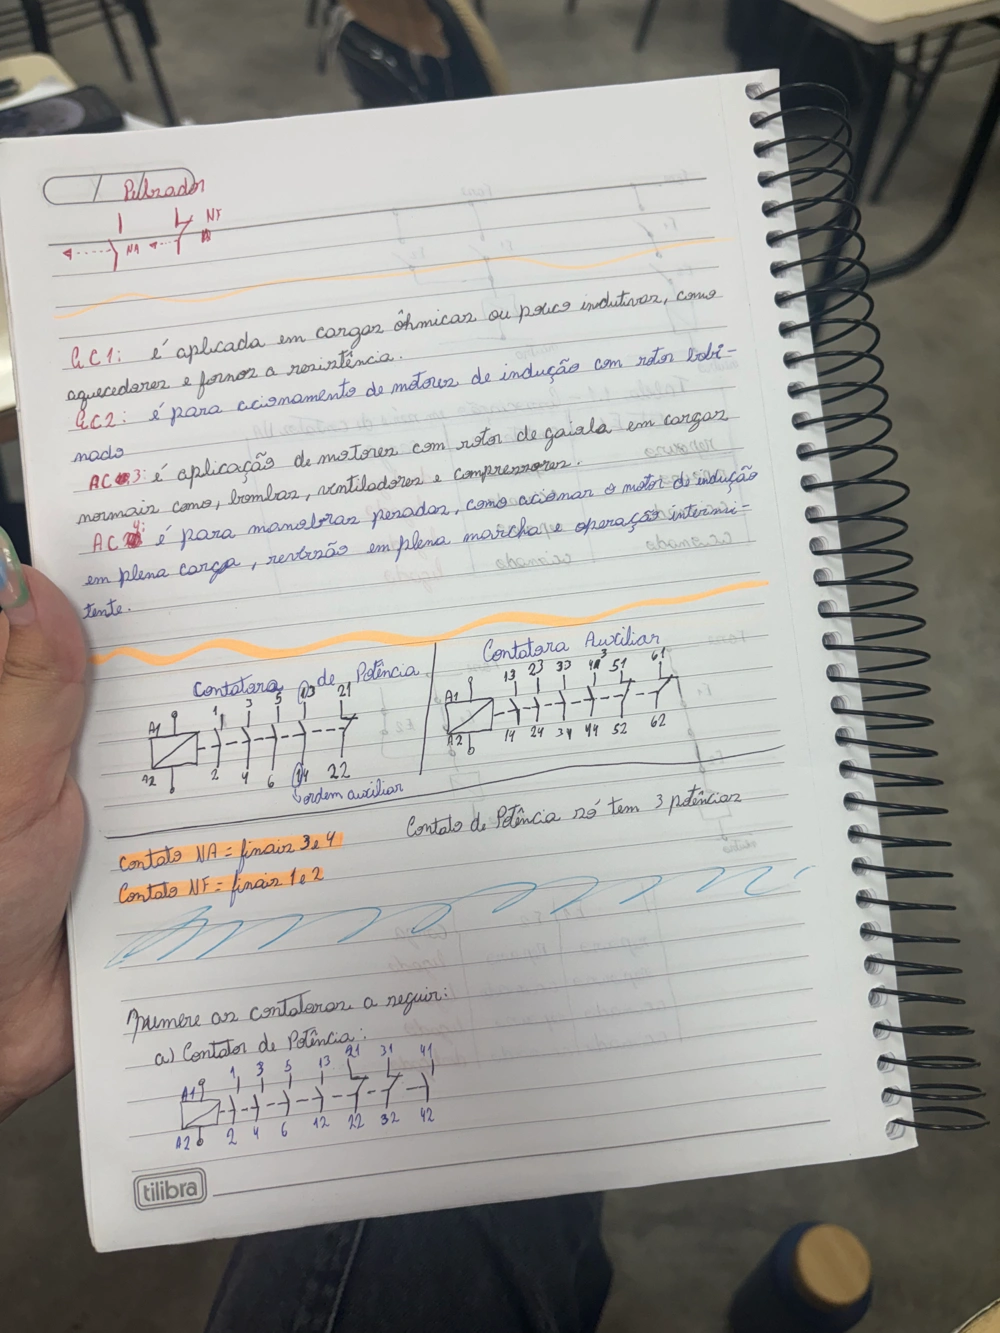 Pulsador
NA NF
AC1: é aplicada em cargas ôhmicas ou pouco indutivas, como
aquecedores e fornos a resistência.
AC2: é para acionamento de motores de indução com rotor bobi-
nado
AC3: é aplicação de motores com rotor de gaiola em cargas
normais como, bombas, ventiladores e compressores.
AC4: é para manobras pesadas, como acionar o motor de indução
em plena carga, reversão em plena marcha e operação intermi-
tente.
Contatora de Potência
A1 1 3 5 13 21
A2 2 4 6 14 22
ordem auxiliar
Contatora Auxiliar
A1 13 23 33 43 51 61
A2 14 24 34 44 52 62
Contato de Potência só tem 3 potências
Contato NA = finais 3 e 4
Contato NF = finais 1 e 2
Numere as contatoras a seguir:
a) Contator de Potência:
A1 1 3 5 13 21 31 41
A2 2 4 6 12 22 32 42
tilibra